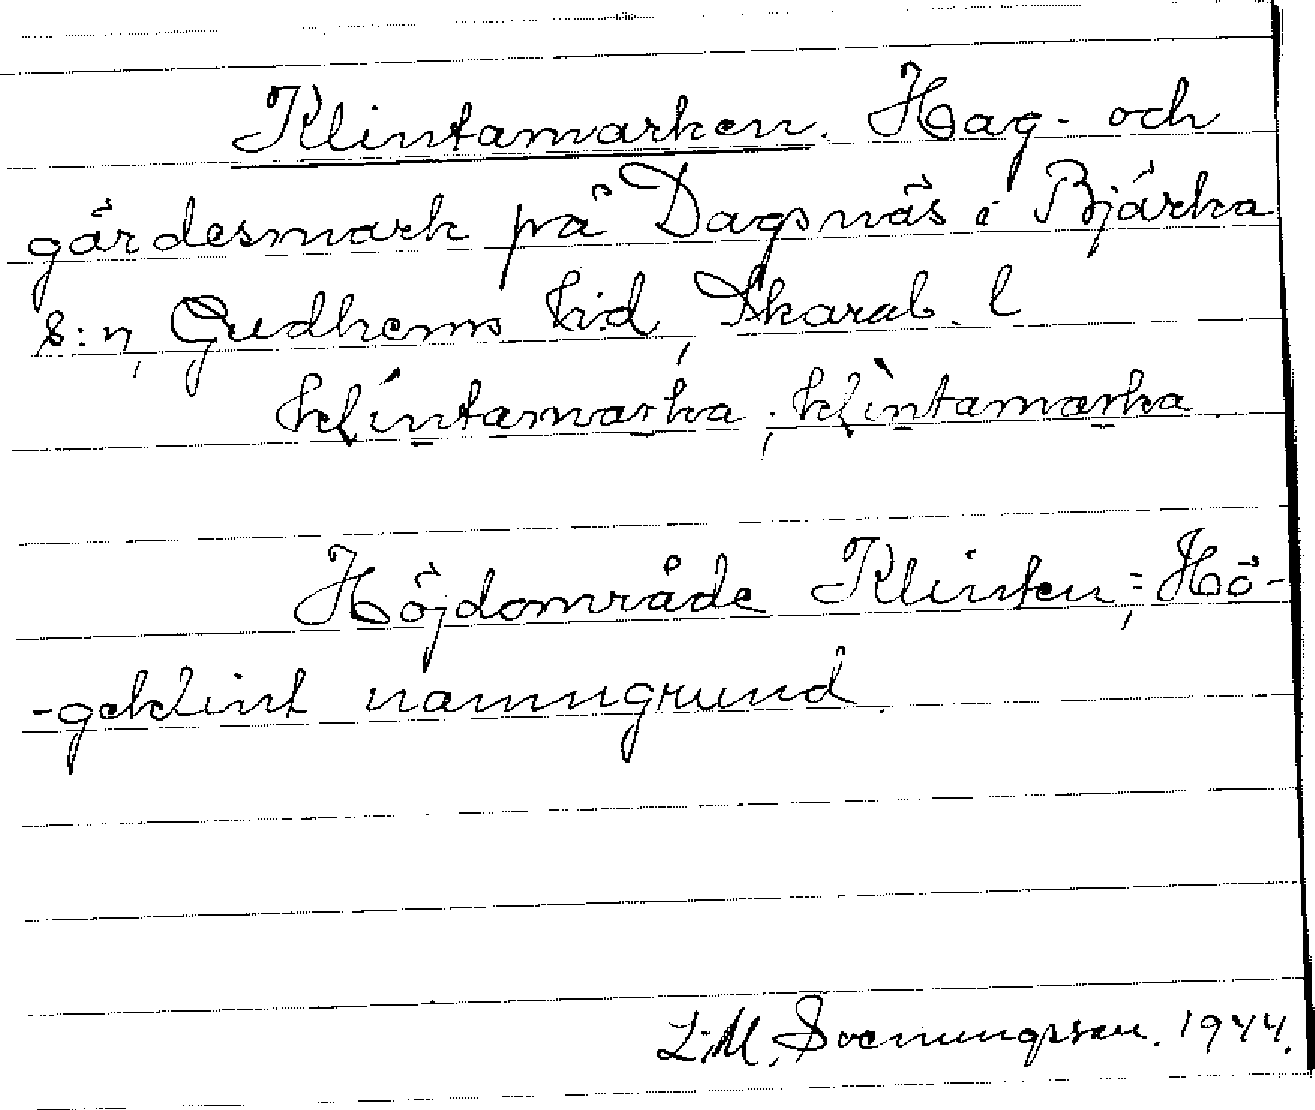 Klintamarken. Hag- och
gärdesmark på Dagsnäs i Bjärka
s:n, Gudhems hd, Skarab. l
klintamarka; klintamarka.
Höjdområde Klinten; Hö-
-geklint namngrund.
L.M. Svenungsson. 1944.